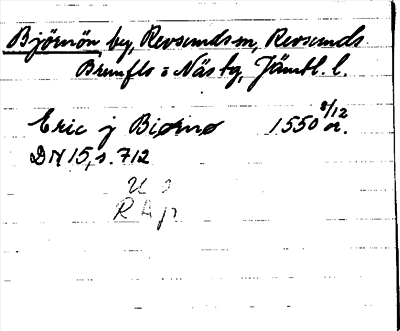 Björnön by, Revsunds sn, Revsunds
Brunflo o Näs tg, Jämtl. l.
Eric j Biørnø 1550 8/12 or.
DN 15, s. 712
U
R A p